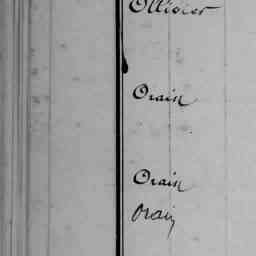 Ollivier
Orain
Orain
Orain